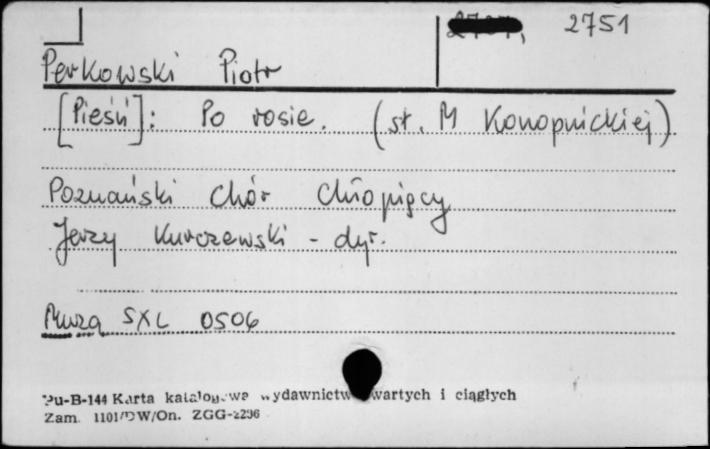 2751
Perkowski Piotr
[Pieśń]: Po rosie. (sł. M Konopnickiej)
Poznański Chór Chłopięcy
Jerzy Kurczewski - dyr.
Muza SXL 0506
Pu-B-144 Karta katalogowa wydawnictw zwartych i ciągłych
Zam. 1101/DW/On. ZGG-2236